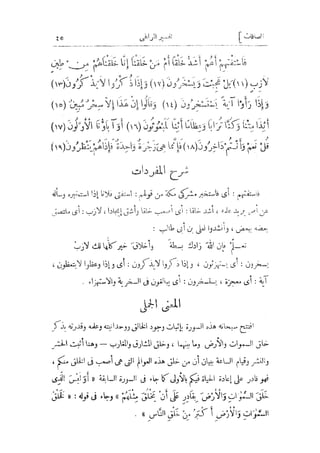 الصافات ] تفسير المراغى ٤٥
فَاسْتَفْتِهِمْ أَهُمْ أَشَدُّ خَلْقًا أَمْ مَنْ خَلَقْنَا إِنَّا خَلَقْنَاهُمْ مِنْ طِينٍ
لَازِبٍ (١١) بَلْ عَجِبْتَ وَيَسْخَرُونَ (١٢) وَإِذَا ذُكِّرُوا لَا يَذْكُرُونَ (١٣)
وَإِذَا رَأَوْا آيَةً يَسْتَسْخِرُونَ (١٤) وَقَالُوا إِنْ هَذَا إِلَّا سِحْرٌ مُبِينٌ (١٥)
أَئِذَا مِتْنَا وَكُنَّا تُرَابًا وَعِظَامًا أَئِنَّا لَمَبْعُوثُونَ (١٦) أَوَآبَاؤُنَا الْأَوَّلُونَ (١٧)
قُلْ نَعَمْ وَأَنْتُمْ دَاخِرُونَ (١٨) فَإِنَّمَا هِيَ زَجْرَةٌ وَاحِدَةٌ فَإِذَا هُمْ يَنْظُرُونَ (١٩)
شرح المفردات
فاستفتهم : أى فاستخبر مشركى مكة من قولهم : استفتى فلانا إذا استخبره وسأله
عن أمر يريد علمه ، أشد خلقا : أى أصعب خلقا وأشق إيجادا ، لازب : أى ملتصق
بعضه ببعض ، وأنشدوا لعلى بن أبى طالب :
تعلّم فإن الله زادك بسطة وأخلاق خير كلها لك لازب
يسخرون : أى يستهزئون ، وإذا ذكروا لا يذكرون : أى وإذا وعظوا لا يتعظون ،
آية : أى معجزة ، يستسخرون : أى يبالغون فى السخرية والاستهزاء .
المعنى الجملى
افتتح سبحانه هذه السورة بإثبات وجود الخالق ووحدانيته وعلمه وقدرته بذكر
خلق السموات والأرض وما بينهما ، وخلق المشارق والمغارب – وهنا أثبت الحشر
والنشر وقيام الساعة ببيان أن من خلق هذه العوالم التى هى أصعب فى الخلق منكم ،
فهو قادر على إعادة الحياة فيكم بالأولى كما جاء فى السورة السابقة « أَوَلَيْسَ الَّذِى
خَلَقَ السَّمٰوَاتِ وَالْأَرْضَ بِقَادِرٍ عَلَى أَنْ يَخْلُقَ مِثْلَهُمْ » وجاء فى قوله : « لَخَلْقُ
السَّمٰوَاتِ وَالْأَرْضِ أَكْبَرُ مِنْ خَلْقِ النَّاسِ » .